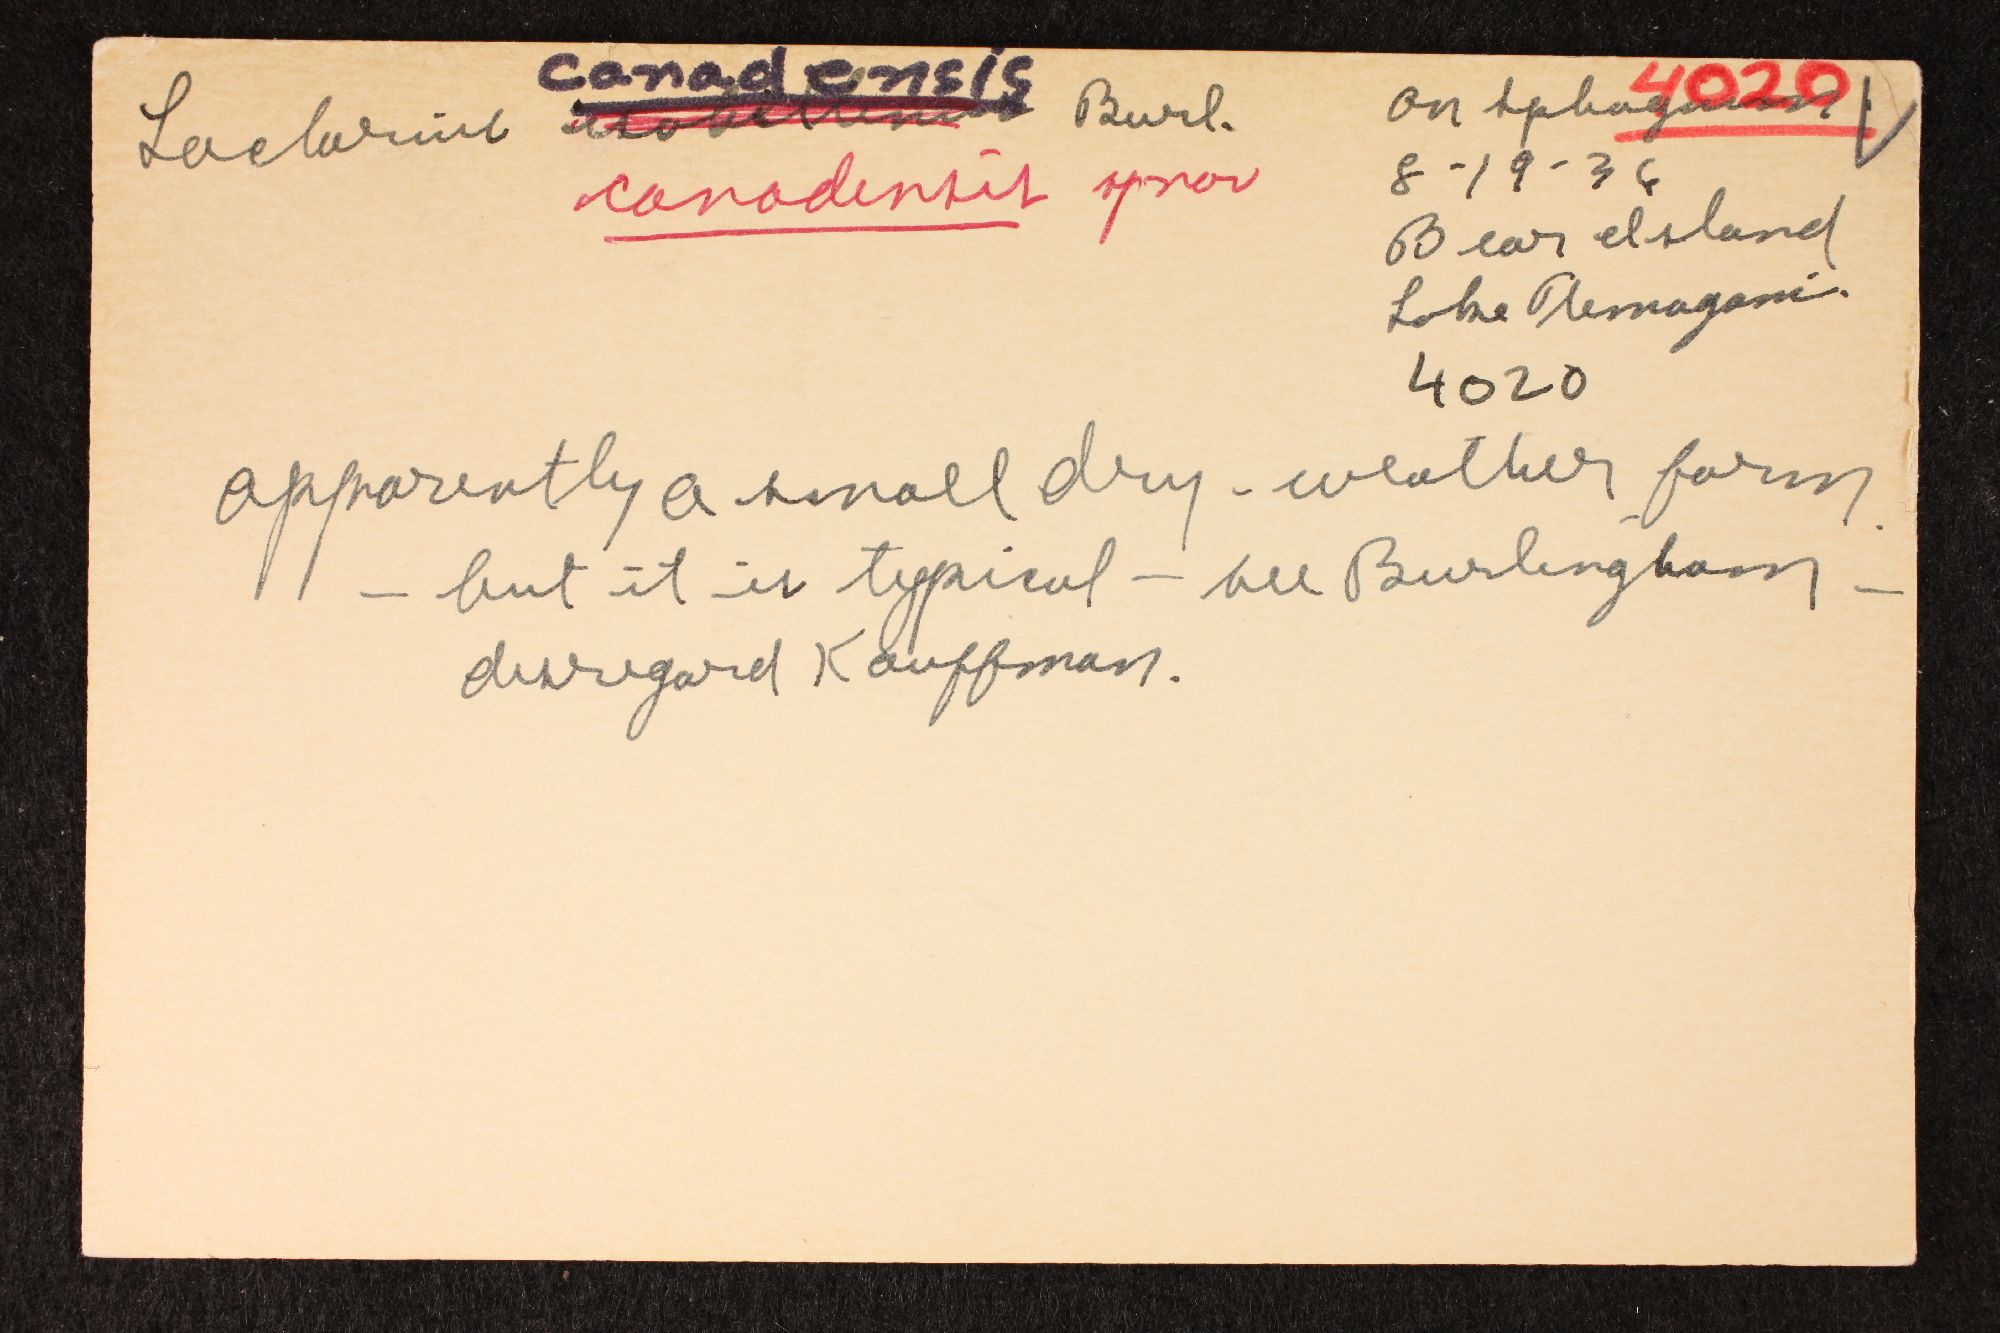 canadensis
Lactarius isabellinus Burl.
canadensis sp nov
4020
on sphagnum
8-19-36
Bear Island
Lake Temagami.
4020
apparently a small dry-weather form.
- but it is typical - see Burlingham -
disregard Kauffman.